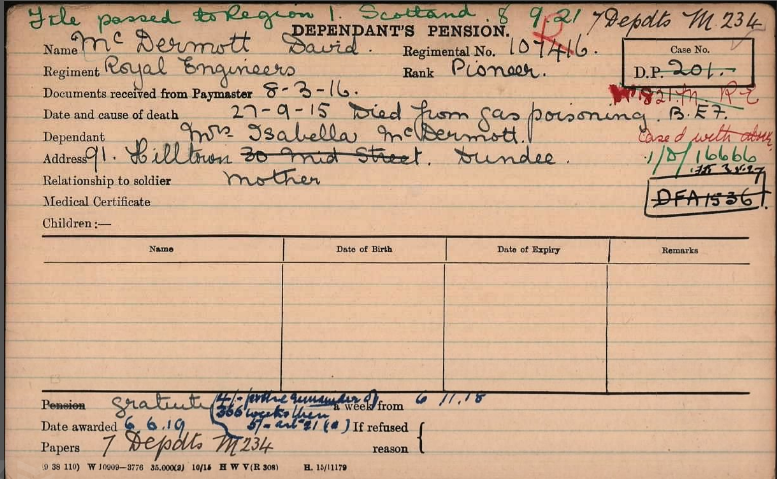 File passed to Region 1. Scotland. 8 9.21 7 Depdts M 234
DEPENDANT'S PENSION.
Name McDermott David. Regimental No. 107416.
Case No.
Regiment Royal Engineers Rank Pioneer.
D.P. 201.
Documents received from Paymaster 8-3-16.
Date and cause of death 27-9-15 Died from gas poisoning. B.E.F.
Dependant Mrs Isabella McDermott.
Cased with above
Address 91. Hilltown 30 Mid Street. Dundee.
1/D/16666
Relationship to soldier mother
Medical Certificate
DFA 1536
Children:—
Name Date of Birth Date of Expiry Remarks
Pension gratuity 4/- for the remainder of a week from 6 11.18
366 weeks then
Date awarded 6.6.19 5/- art 21 (a) If refused
Papers 7 Depdts M234 reason {
(9 38 110) W 10909—3776 35,000(2) 10/15 H W V (R 308) H. 15/11179